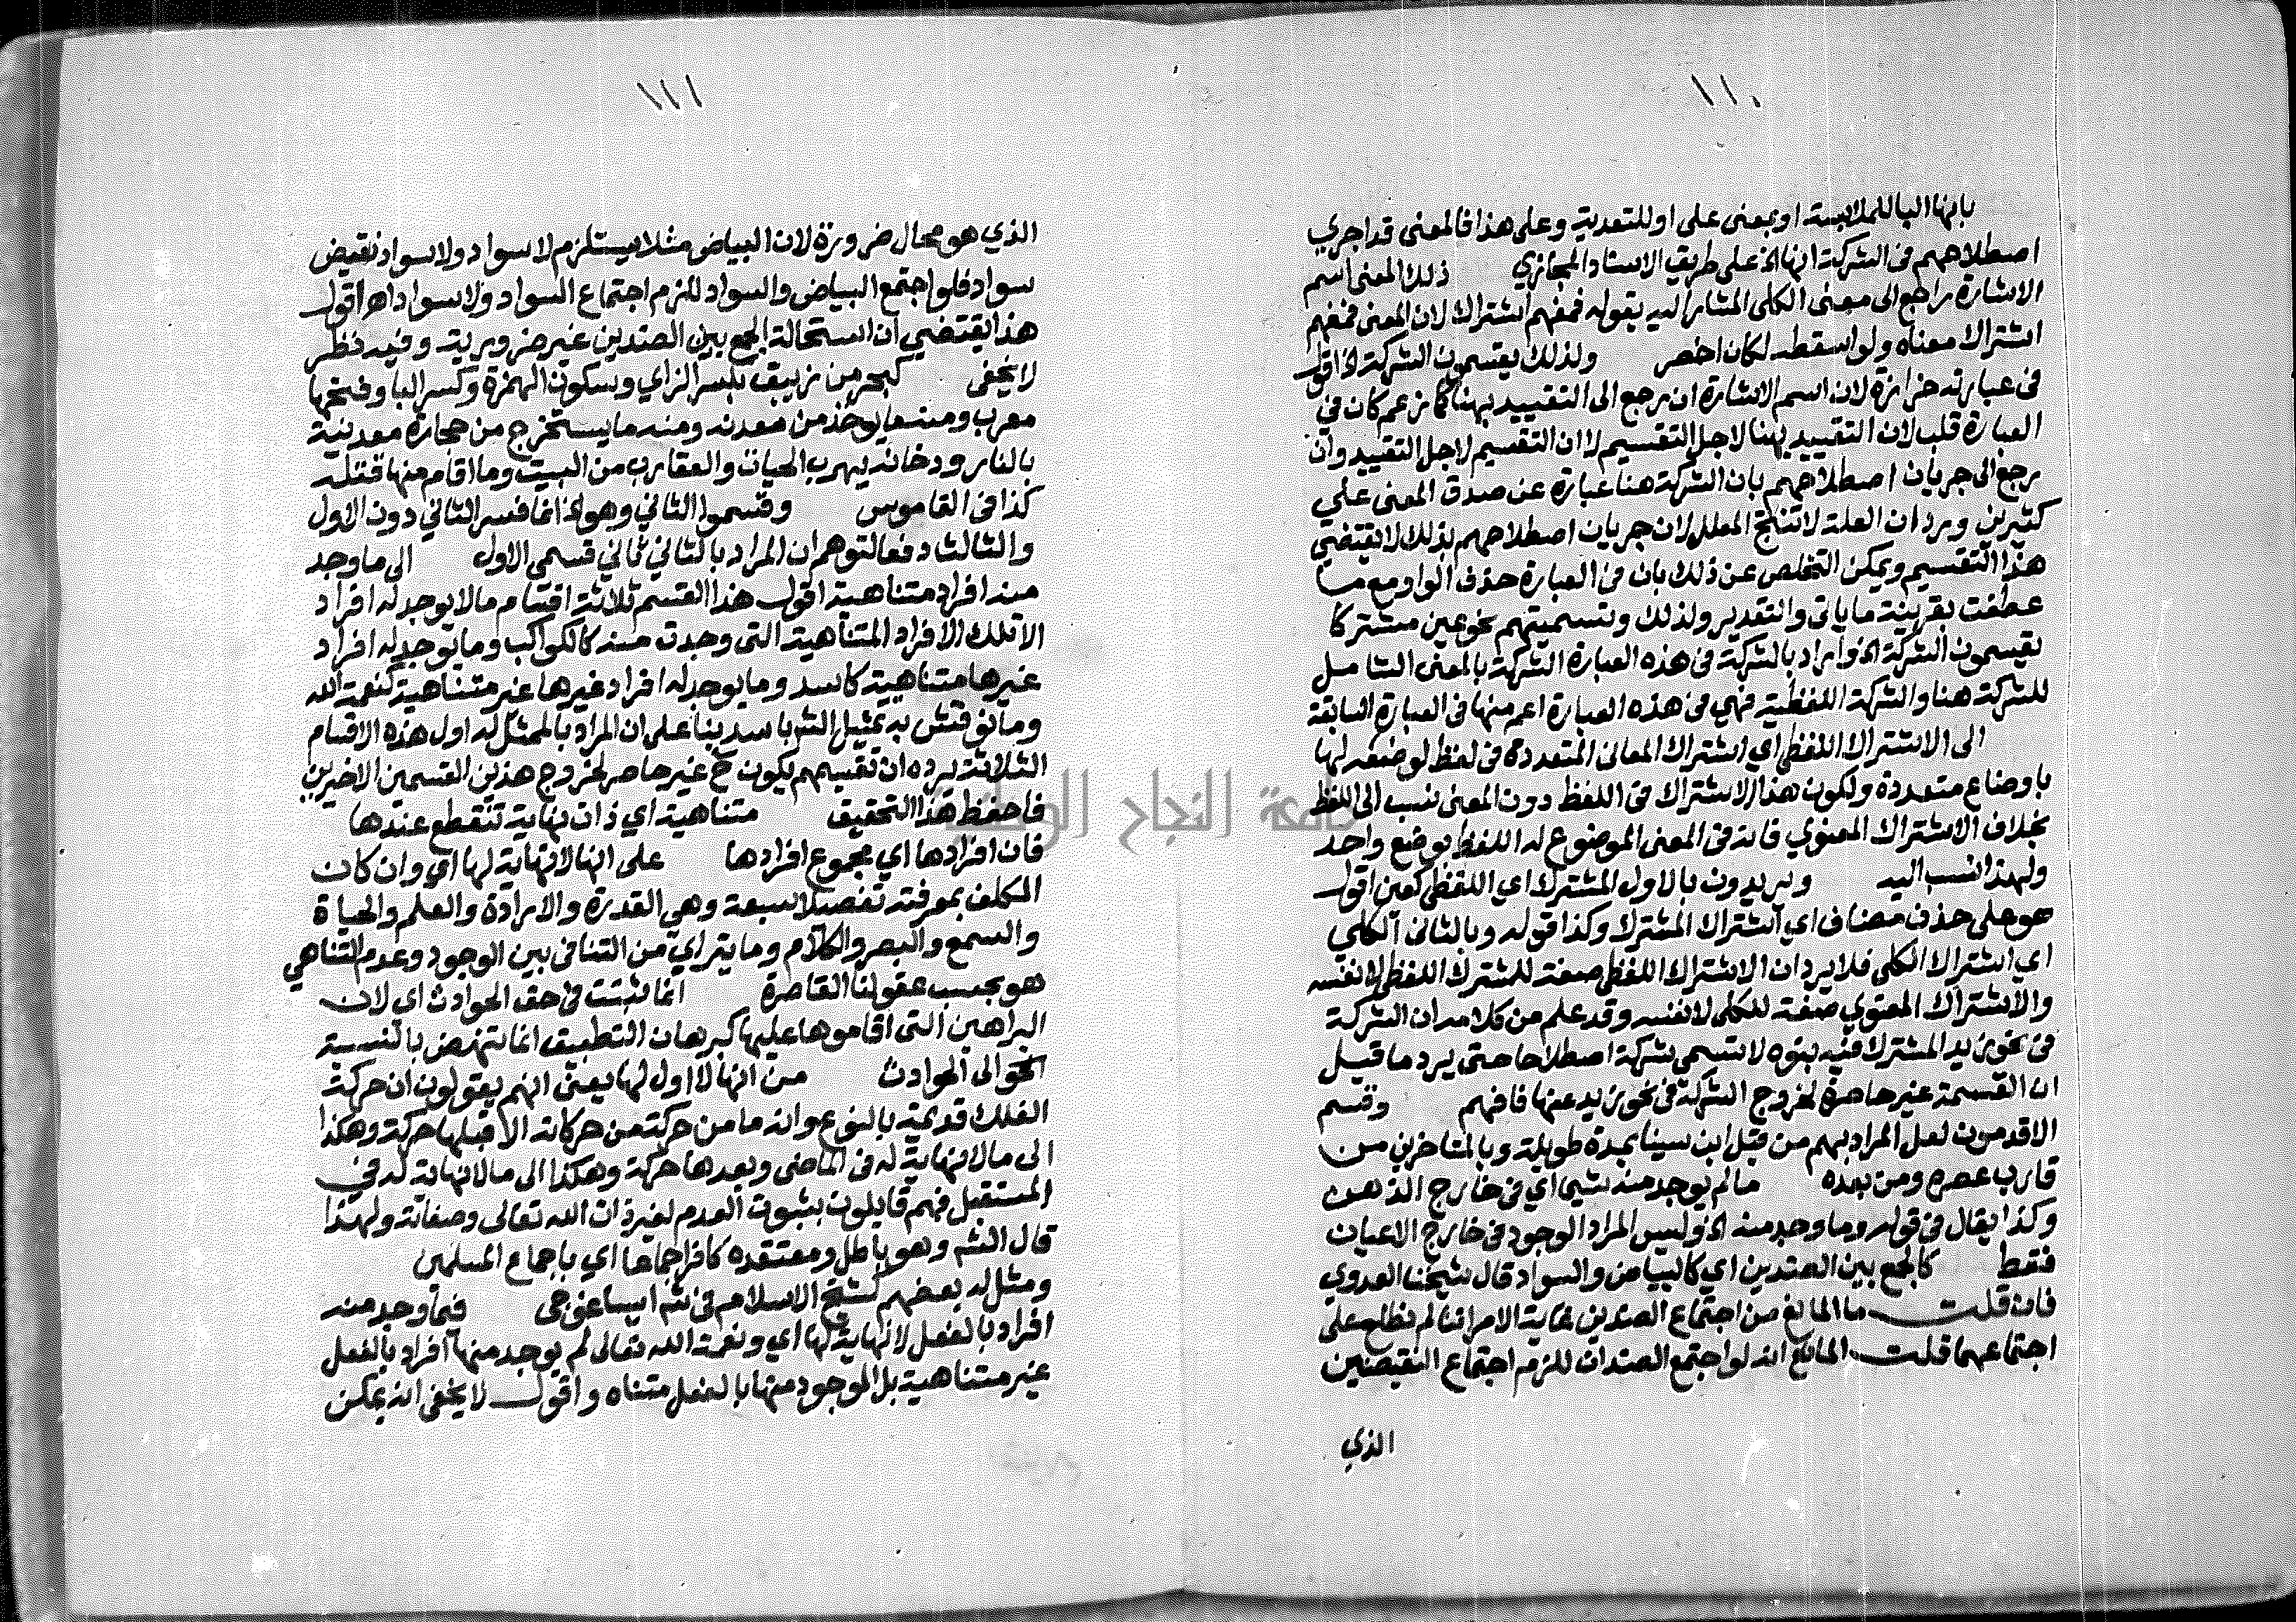 ١١٠
بانها الباللملابسة او بمعنى على او للتعدية وعلى هذا فالمعنى قد اجري
اصطلاحهم في الشركة انها الخ على طريق الاسناد المجازي ذلك المعنى اسم
الاشارة راجع الى معنى الكلي المشار اليه بقوله فمفهم اشتراك لان المعنى فمفهم
اشتراك معناه ولو اسقطه لكان اخصر ولذلك يقسمون الشركة الخ اقول
في عبارته حزازة لان اسم الاشارة ان رجع الى التقييد بهنا كما زعم كان في
العبارة قلب لان التقييد بهنا لاجل التقسيم لا ان التقسيم لاجل التقييد وان
رجع الى جريان اصطلاحهم بان الشركة هنا عبارة عن صدق المعنى على
كثيرين ورد ان العلة لا تنتج المعلل لان جريان اصطلاحهم بذلك لا يقتضي
هذا التقسيم ويمكن التخلص عن ذلك بان في العبارة حذف الواو مع ما
عطفت بقرينة ما ياتي والتقدير ولذلك وتسميتهم نحو عين مشتركا
يقسمون الشركة الخ وارادبالشركة في هذه العبارة الشركة بالمعنى الشامل
للشركة هنا والشركة اللفظية فهي في هذه العبارة اعم منها في العبارة السابقة
الى الاشتراك اللفظي اي اشتراك المعاني المتعددة في لفظ لوضعه لها
باوضاع متعددة ولكون هذا الاشتراك في اللفظ دون المعنى نسب الى اللفظ
بخلاف الاشتراك المعنوي فانه في المعنى الموضوع له اللفظ بوضع واحد
ولهذا نسب اليه ويريدون بالاول المشترك اي اللفظي كعين اقول
هو على حذف مضاف اي اشتراك المشترك وكذا قوله وبالثاني الكلي
اي اشتراك الكلي فلا يرد ان الاشتراك اللفظي صفة للمشترك اللفظي لا نفسه
والاشتراك المعنوي صفة للكلي لا نفسه وقد علم من كلامه ان الشركة
في نحو زيد المشترك فيه بنوه لا تسمى شركة اصطلاحا حتى يرد ما قيل
ان القسمة غير حاصرة لخروج الشركة في نحو زيد عنها فافهم وقسم
الاقدمون لعل المراد بهم من قبل ابن سينا بمدة طويلة وبالمتاخرين من
قارب عصره ومن بعده ما لم يوجد منه شيى اي في خارج الذهن
وكذا يقال في قوله وما وجد منه الخ وليس المراد الوجود في خارج الاعيان
فقط كالجمع بين الضدين اي كالبياض والسواد قال شيخنا العدوي
فان قلت ما المانع من اجتماع الضدين غاية الامر اننا لم نطلع على
اجتماعهما قلت المانع انه لو اجتمع الضدان للزم اجتماع النقيضين
الذي
١١١
الذي هو محال ضرورة لان البياض مثلا يستلزم لاسواد ولاسواد نقيض
سواد فلو اجتمع البياض والسواد للزم اجتماع السواد ولاسواد اه اقول
هذا يقتضي ان استحالة الجمع بين الضدين غير ضرورية وفيه نظر
لا يخفى كبحر من زيبق بكسر الزاي وبسكون الهمزة وكسر البا وفتحها
معرب ومنه ما يوخذ من معدنه ومنه ما يستخرج من حجارة معدنية
بالنار ودخانه يهرب الحيات والعقارب من البيت وما اقام منها قتله
كذا في القاموس وقسموا الثاني وهو الخ انما فسر الثاني دون الاول
والثالث دفعا لتوهم ان المراد بالثاني ثاني قسمي الاول الى ما وجد
منه افراد متناهية اقول هذا القسم ثلاثة اقسام ما لا يوجد له افراد
الا تلك الافراد المتناهية التي وجدت منه كالكواكب وما يوجد له افراد
غيرها متناهية كاسد وما يوجد له افراد غيرها غير متناهية كنعمة الله
وما نوقش به تمثيل الشر باسد بنا على ان المراد بالممثل له اول هذه الاقسام
الثلاثة يرده ان تقسيمهم يكون ح غير حاصر لخروج هذين القسمين الاخيرين
فاحفظ هذا التحقيق متناهية اي ذات نهاية تنقطع عندها
فان افرادها اي مجموع افرادها على انها لانهاية لها اي وان كان
المكلف بمعرفته تفصيلا سبعة وهي القدرة والارادة والعلم والحياة
والسمع والبصر والكلام وما يترااي من التنافي بين الوجود وعدم التناهي
هو بحسب عقولنا القاصرة انما ثبتت في حق الحوادث اي لان
البراهين التي اقاموها عليها كبرهان التطبيق انما تنهض بالنسبة
الخ والى الحوادث من انها لا اول لها يعني انهم يقولون ان حركة
الفلك قديمة بالنوع وانه ما من حركة من حركاته الا قبلها حركة وهكذا
الى ما لا نهاية له في الماضي وبعدها حركة وهكذا الى ما لا نهاية له في
المستقبل فهم قايلون بثبوت القدم لغير ذات الله تعالى وصفاته ولهذا
قال الشه وهو باطل ومعتقده كافر اجماعا اي باجماع المسلمين
ومثل له بعضهم كشيخ الاسلام في شم ايساغوجي فيما وجد منه
افراد بالفعل لانهاية لها اي ونعمة الله تعالى لم يوجد منها افراد بالفعل
غير متناهية بل الموجود منها بالفعل متناه واقول لا يخفى انه يمكن
جامعة النجاح الوطنية